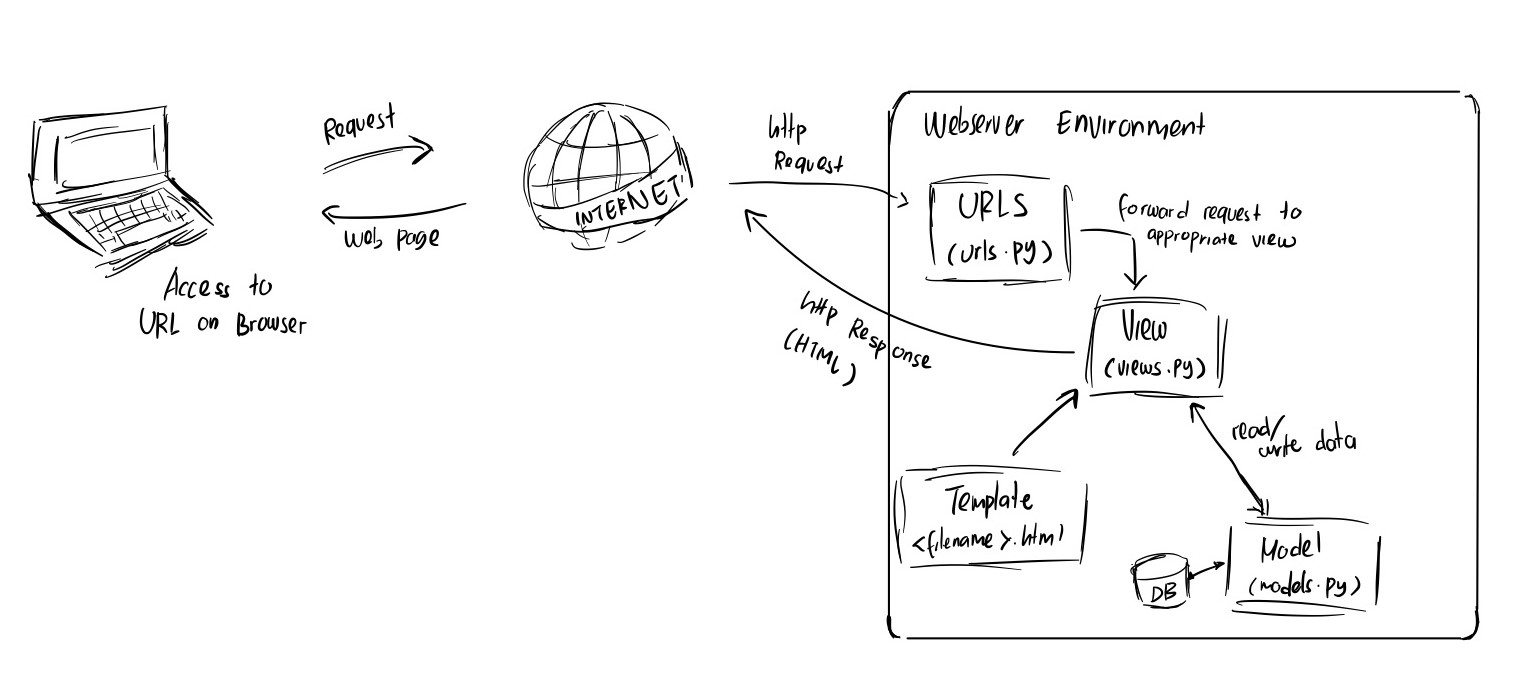 Request
web page
Access to
URL on Browser
INTERNET
http
Request
http Response
(HTML)
Webserver Environment
URLS
(urls.py)
forward request to
appropriate view
View
(views.py)
read/
write data
Template
<filename>.html
DB
Model
(models.py)